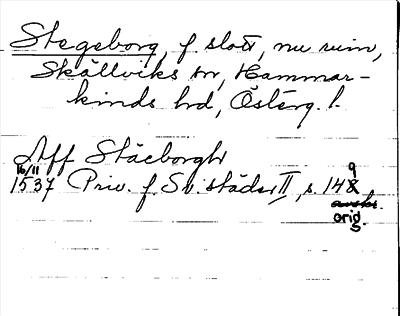 Stegeborg, f. slott, nu ruin,
Skällviks sn, Hammar-
kinds hd, Östерg. l.
Aff Stäeborgh
16/11
1537 Priv. f. Sv. städer II, s. 149
avskr.
orig.